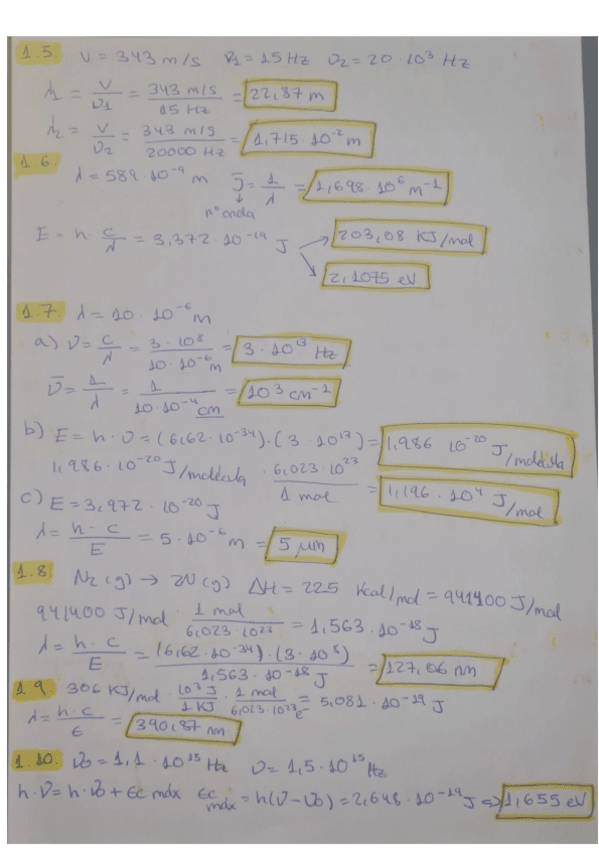 1.5. v = 343 m/s ν1 = 15 Hz ν2 = 20 · 10³ Hz
λ1 = v/ν1 = 343 m/s / 15 Hz = 22,87 m
λ2 = v/ν2 = 343 m/s / 20000 Hz = 1,715 · 10⁻² m
1.6.
λ = 589 · 10⁻⁹ m ν̅ = 1/λ = 1,698 · 10⁶ m⁻¹
nº onda
E = h · c/λ = 3,372 · 10⁻¹⁹ J → 203,08 KJ/mol
→ 2,1075 eV
1.7. λ = 10 · 10⁻⁶ m
a) ν = c/λ = 3 · 10⁸ / 10 · 10⁻⁶ m = 3 · 10¹³ Hz
ν̅ = 1/λ = 1 / 10 · 10⁻⁴ cm = 10³ cm⁻¹
b) E = h · ν = (6,62 · 10⁻³⁴) · (3 · 10¹³) = 1,986 10⁻²⁰ J/molécula
1,986 · 10⁻²⁰ J/molécula · 6,023 · 10²³ / 1 mol = 1,196 · 10⁴ J/mol
c) E = 3,972 · 10⁻²⁰ J
λ = h · c / E = 5 · 10⁻⁶ m = 5 μm
1.8. N2 (g) → 2N (g) ΔH = 225 Kcal/mol = 941400 J/mol
941400 J/mol · 1 mol / 6,023 · 10²³ = 1,563 · 10⁻¹⁸ J
λ = h · c / E = (6,62 · 10⁻³⁴) · (3 · 10⁸) / 1,563 · 10⁻¹⁸ J = 127,06 nm
1.9. 306 KJ/mol · 10³ J / 1 KJ · 1 mol / 6,023 · 10²³ e⁻ = 5,081 · 10⁻¹⁹ J
λ = h · c / ε = 390,87 nm
1.10. ν0 = 1,1 · 10¹⁵ Hz ν = 1,5 · 10¹⁵ Hz
h · ν = h · ν0 + εc máx εc máx = h(ν - ν0) = 2,648 · 10⁻¹⁹ J ⇒ 1,655 eV